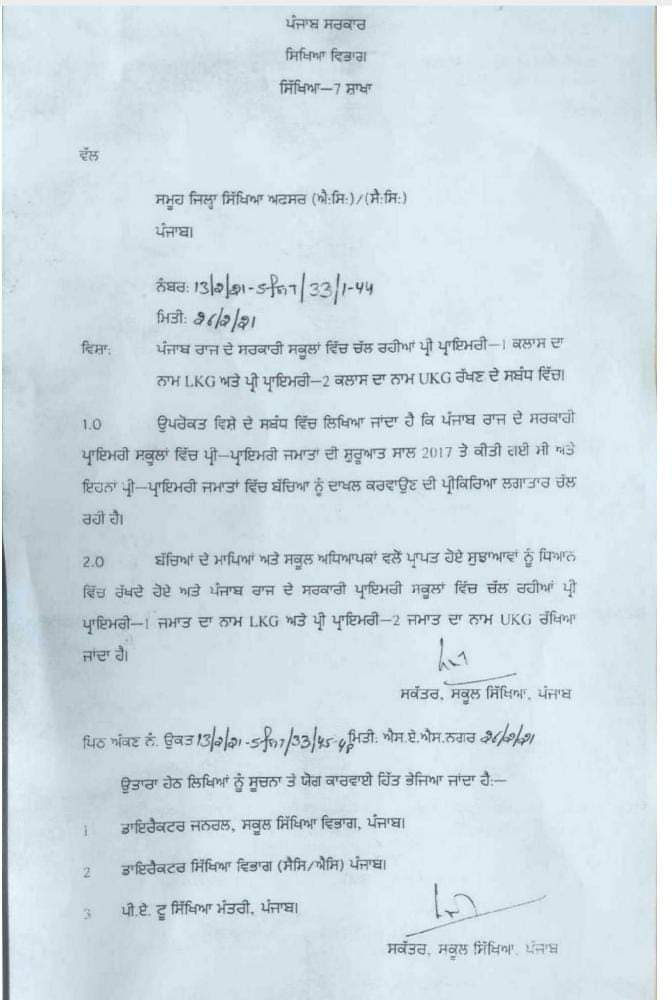 ਪੰਜਾਬ ਸਰਕਾਰ
ਸਿਖਿਆ ਵਿਭਾਗ
ਸਿੱਖਿਆ—7 ਸ਼ਾਖਾ
ਵੱਲ
ਸਮੂਹ ਜਿਲ੍ਹਾ ਸਿੱਖਿਆ ਅਫਸਰ (ਐ:ਸਿ:)/(ਸੈ:ਸਿ:)
ਪੰਜਾਬ।
ਨੰਬਰ: 13/2/21-
ਮਿਤੀ: 26/2/21
ਵਿਸ਼ਾ: ਪੰਜਾਬ ਰਾਜ ਦੇ ਸਰਕਾਰੀ ਸਕੂਲਾਂ ਵਿੱਚ ਚੱਲ ਰਹੀਆਂ ਪ੍ਰੀ ਪ੍ਰਾਇਮਰੀ—1 ਕਲਾਸ ਦਾ
ਨਾਮ LKG ਅਤੇ ਪ੍ਰੀ ਪ੍ਰਾਇਮਰੀ—2 ਕਲਾਸ ਦਾ ਨਾਮ UKG ਰੱਖਣ ਦੇ ਸਬੰਧ ਵਿੱਚ।
1.0 ਉਪਰੋਕਤ ਵਿਸ਼ੇ ਦੇ ਸਬੰਧ ਵਿੱਚ ਲਿਖਿਆ ਜਾਂਦਾ ਹੈ ਕਿ ਪੰਜਾਬ ਰਾਜ ਦੇ ਸਰਕਾਰੀ
ਪ੍ਰਾਇਮਰੀ ਸਕੂਲਾਂ ਵਿੱਚ ਪ੍ਰੀ—ਪ੍ਰਾਇਮਰੀ ਜਮਾਤਾਂ ਦੀ ਸ਼ੁਰੂਆਤ ਸਾਲ 2017 ਤੇ ਕੀਤੀ ਗਈ ਸੀ ਅਤੇ
ਇਹਨਾਂ ਪ੍ਰੀ—ਪ੍ਰਾਇਮਰੀ ਜਮਾਤਾਂ ਵਿੱਚ ਬੱਚਿਆ ਨੂੰ ਦਾਖਲ ਕਰਵਾਉਣ ਦੀ ਪ੍ਰੀਕਿਰਿਆ ਲਗਾਤਾਰ ਚੱਲ
ਰਹੀ ਹੈ।
2.0 ਬੱਚਿਆਂ ਦੇ ਮਾਪਿਆਂ ਅਤੇ ਸਕੂਲ ਅਧਿਆਪਕਾਂ ਵਲੋਂ ਪ੍ਰਾਪਤ ਹੋਏ ਸੁਝਾਆਵਾਂ ਨੂੰ ਧਿਆਨ
ਵਿੱਚ ਰੱਖਦੇ ਹੋਏ ਅਤੇ ਪੰਜਾਬ ਰਾਜ ਦੇ ਸਰਕਾਰੀ ਪ੍ਰਾਇਮਰੀ ਸਕੂਲਾਂ ਵਿੱਚ ਚੱਲ ਰਹੀਆਂ ਪ੍ਰੀ
ਪ੍ਰਾਇਮਰੀ—1 ਜਮਾਤ ਦਾ ਨਾਮ LKG ਅਤੇ ਪ੍ਰੀ ਪ੍ਰਾਇਮਰੀ—2 ਜਮਾਤ ਦਾ ਨਾਮ UKG ਰੱਖਿਆ
ਜਾਂਦਾ ਹੈ।
ਸਕੱਤਰ, ਸਕੂਲ ਸਿੱਖਿਆ, ਪੰਜਾਬ
ਪਿਠ ਅੰਕਣ ਨੰ. ਉਕਤ 13/2/21- ਮਿਤੀ: ਐਸ.ਏ.ਐਸ.ਨਗਰ 26/2/21
ਉਤਾਰਾ ਹੇਠ ਲਿਖਿਆਂ ਨੂੰ ਸੂਚਨਾ ਤੇ ਯੋਗ ਕਾਰਵਾਈ ਹਿੱਤ ਭੇਜਿਆ ਜਾਂਦਾ ਹੈ:—
1 ਡਾਇਰੈਕਟਰ ਜਨਰਲ, ਸਕੂਲ ਸਿੱਖਿਆ ਵਿਭਾਗ, ਪੰਜਾਬ।
2 ਡਾਇਰੈਕਟਰ ਸਿੱਖਿਆ ਵਿਭਾਗ (ਸੈਸਿ/ਐਸਿ) ਪੰਜਾਬ।
3 ਪੀ.ਏ. ਟੂ ਸਿੱਖਿਆ ਮੰਤਰੀ, ਪੰਜਾਬ।
ਸਕੱਤਰ, ਸਕੂਲ ਸਿੱਖਿਆ, ਪੰਜਾਬ